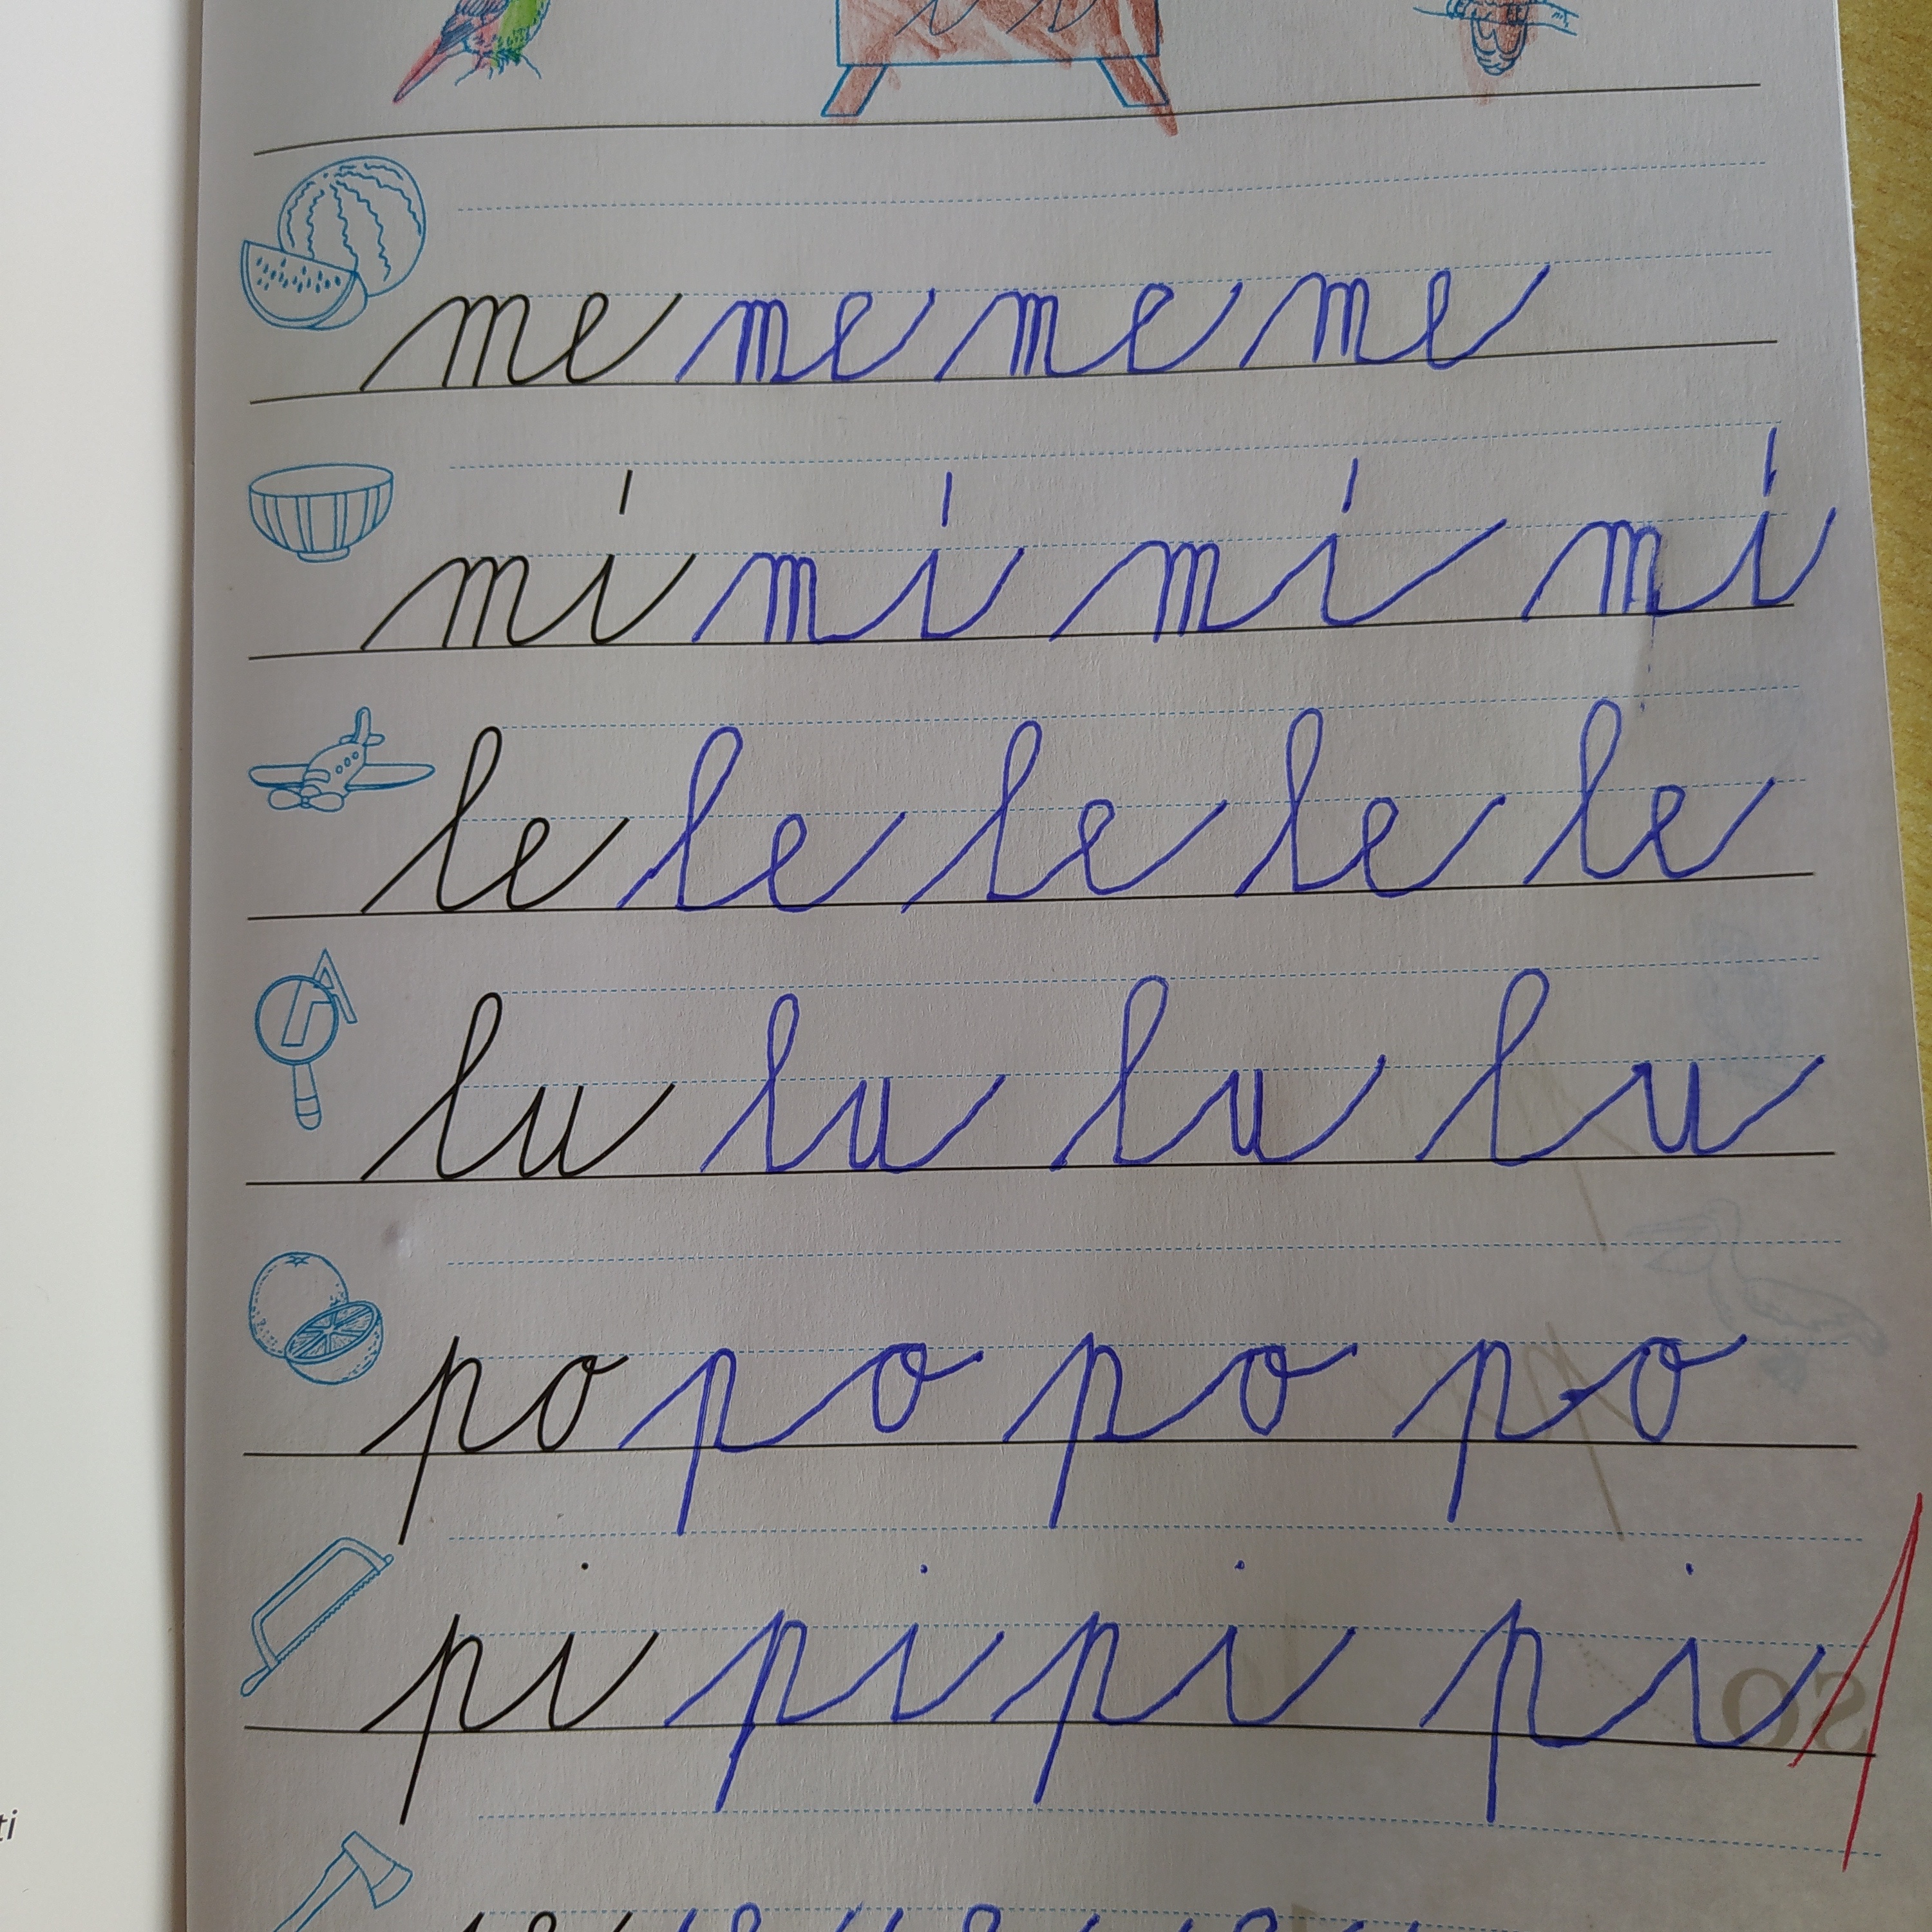 me me me me
mí mí mí mí
le le le le le
lu lu lu lu
po po po po
pi pi pi pi
ti